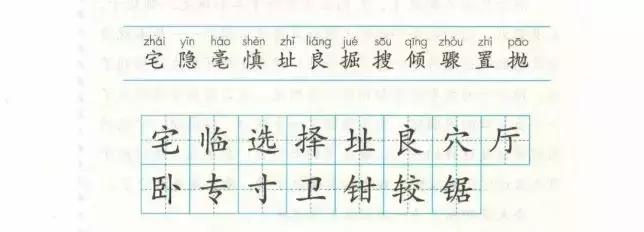 zhái yǐn háo shèn zhǐ liáng jué sōu qīng zhòu zhì pāo
宅 隐 毫 慎 址 良 掘 搜 倾 骤 置 抛
宅 临 选 择 址 良 穴 厅
卧 专 寸 卫 钳 较 锯